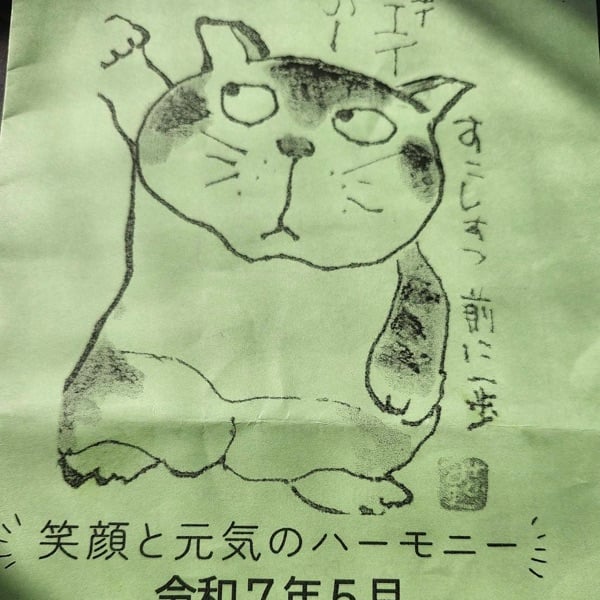 エイ
オー
すこしずつ 前に一歩
笑顔と元気のハーモニー
令和7年5月